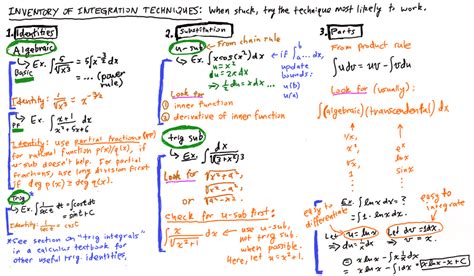 INVENTORY OF INTEGRATION TECHNIQUES: When stuck, try the technique most likely to work.
1. Identities
Algebraic
Ex. ∫ 5/√x³ dx = 5∫x^(-3/2) dx
= ... (power rule)
Basic
Identity: 1/√x³ = x^(-3/2)
PF
Ex. ∫ (x+1)/(x²+5x+6) dx
Identity: use partial fractions (PF)
for rational function p(x)/q(x), if
u-sub doesn't help. For partial
fractions, use long division first
if deg p(x) ≥ deg q(x).
trig
Ex. ∫ 1/sec t dt = ∫cos t dt
= sin t + C
Identity:
*See section on "trig integrals"
in a calculus textbook for
other useful trig. identities.
2. Substitution
u-sub
From chain rule
Ex. ∫x cos(x²) dx
u = x²
du = 2x dx
⇒ ½ du = x dx ...
if ∫ₐᵇ ... dx,
update
bounds:
u(b)
u(a)
Look for
① inner function
② derivative of inner function
trig sub
Ex. ∫ dx/
Look for
√x²+a²,
√x²-a²,
or √a²-x²
check for u-sub first:
∫ x/√x²+1 dx
use u-sub,
not trig sub
when possible.
Here, let u = x²+1.
3. Parts
From product rule
∫u dv = uv - ∫v du
Look for (usually):
∫(algebraic)(transcendental) dx
√x, eˣ
x²,
1, sin x
Ex. ∫ln x dx = ?
= ∫1·ln x dx.
easy to differentiate
easy to integrate
Let u = ln x
Let dv = 1 dx
⇒ v = x.
= x ln x - ∫x·(1/x) dx
= x ln x - ∫1 dx = x ln x - x + C